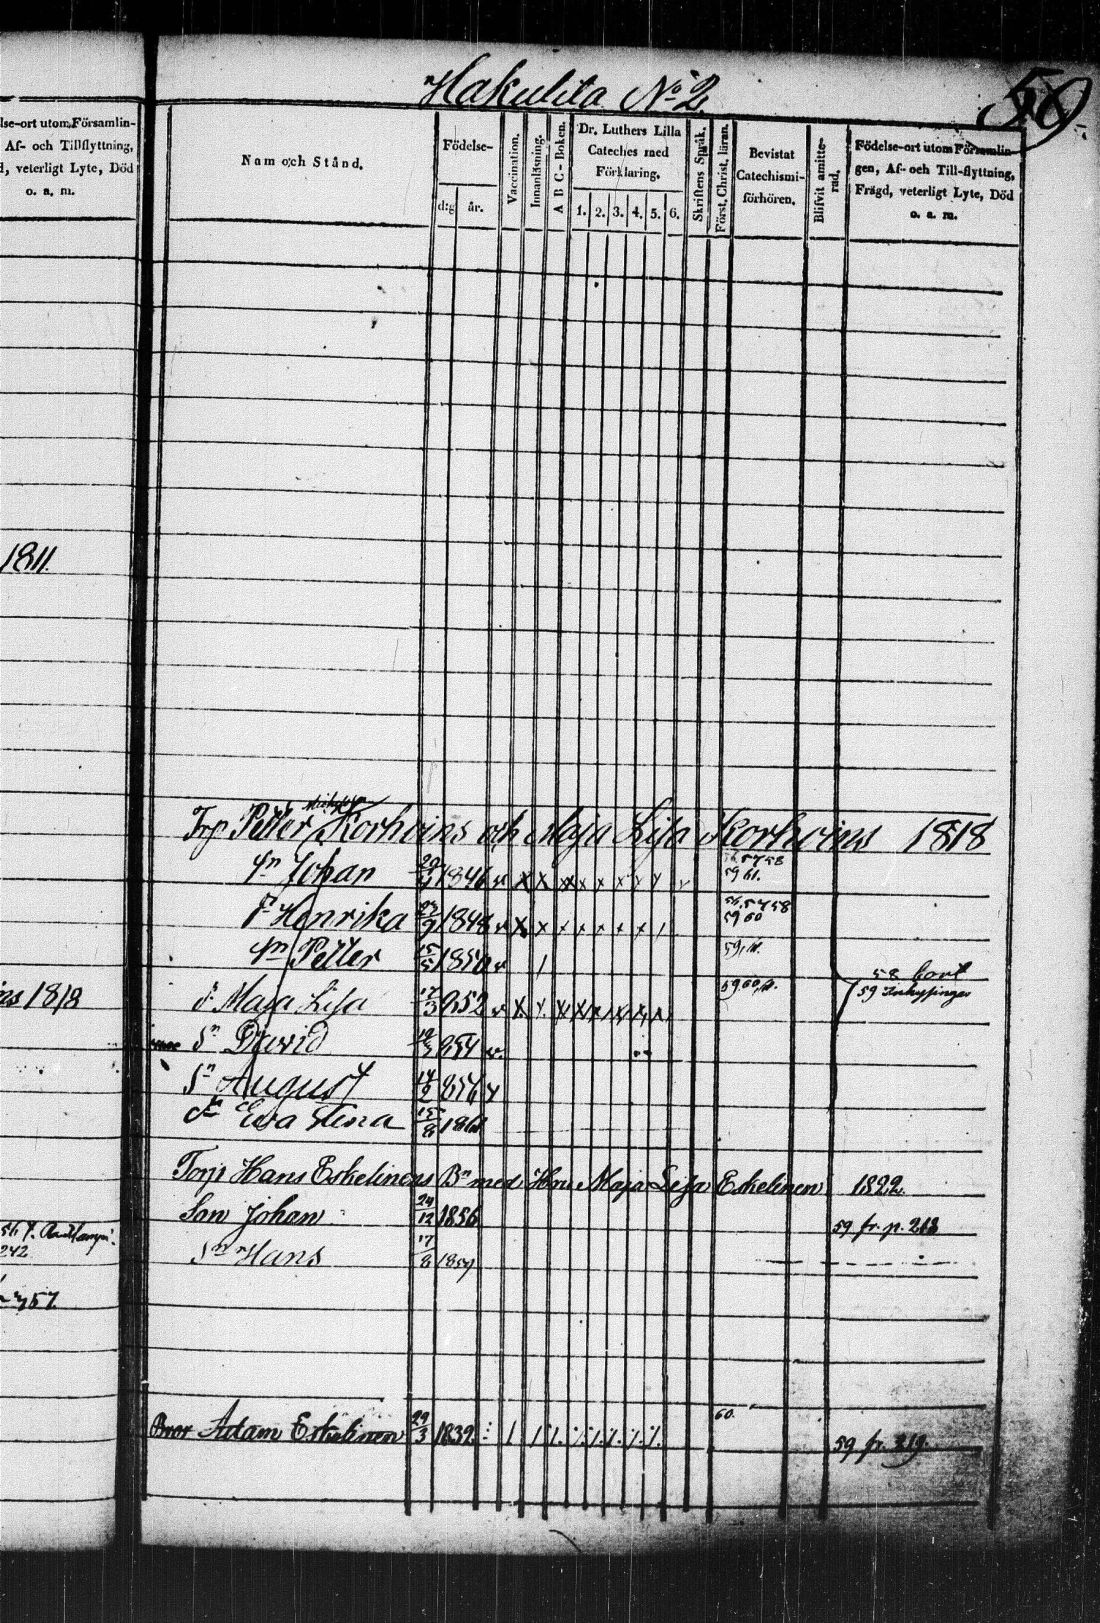 Hakulita No 2.
58
lse-ort utom Församlin-
Af- och Tillflyttning,
d, veterligt Lyte, Död
o. a. m.
Namn och Stånd.
Födelse-
d:g
år.
Vaccination.
Innanläsning.
A B C-Boken.
Dr. Luthers Lilla
Cateches med
Förklaring.
1. 2. 3. 4. 5. 6.
Skriftens Språk.
Först. Christ. läran.
Bevistat
Catechismi-
förhören.
Blifvit amitte-
rad.
Födelse-ort utom Församlin-
gen, Af- och Till-flyttning,
Frägd, veterligt Lyte, Död
o. a. m.
1811.
Torp Petter Korhoins och Maja Lisa Korhoins 1818
Sn Johan 20/9 1846 v x x x x x x x x 56 57 58 59 61.
d. Henrika 23/9 1848 v x x x x x x x 56, 57 58 59 60
Sn Petter 15/5 1850 v 59,
58 bort
ins 1818
d. Maja Lisa 17/3 852 v x x x x x x x 59 60, 59
Sn David 19/3 854 v.
Sn August 14/2 856 v
dr Ewa Stina 15/8 186
Torp Hans Eskelinens Bn med Hu Maja Lisa Eskelinen 1822.
Son Johan 24/12 1856 59 fr. p. 213
242
Sn Hans 17/8 1859
57
Bror Adam Eskelinen 29/3 1839 60. 59 fr. 219.